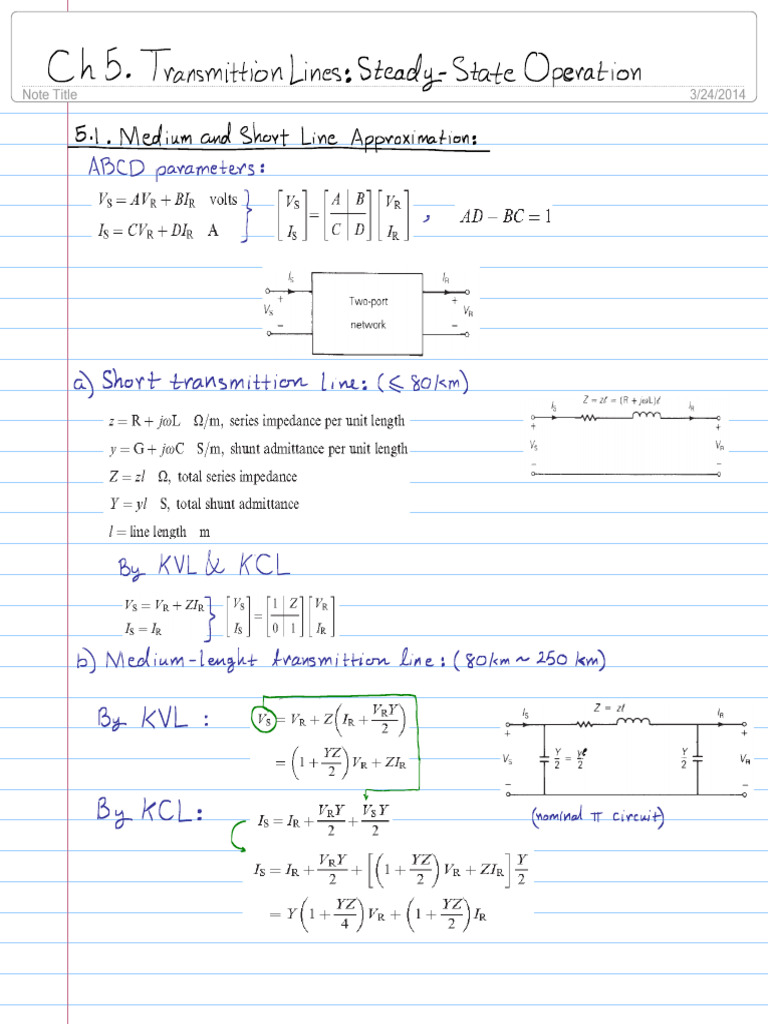 Ch 5. Transmittion Lines: Steady-State Operation
Note Title 3/24/2014
5.1. Medium and Short Line Approximation:
ABCD parameters:
V_S = AV_R + BI_R volts
I_S = CV_R + DI_R A
[V_S; I_S] = [A | B; C | D] [V_R; I_R] , AD − BC = 1
I_S I_R
+ Two-port +
V_S network V_R
− −
a) Short transmittion line: (≤ 80km)
z = R + jωL Ω/m, series impedance per unit length
y = G + jωC S/m, shunt admittance per unit length
Z = zl Ω, total series impedance
Y = yl S, total shunt admittance
l = line length m
Z = zl = (R + jωL)l
I_S I_R
+ +
V_S V_R
− −
By KVL & KCL
V_S = V_R + ZI_R
I_S = I_R
[V_S; I_S] = [1 | Z; 0 | 1] [V_R; I_R]
b) Medium-lenght transmittion line: (80km ~ 250 km)
By KVL : V_S = V_R + Z(I_R + V_RY/2)
= (1 + YZ/2) V_R + ZI_R
I_S Z = zl I_R
+ +
V_S Y/2 = yl/2 Y/2 V_R
− −
(nominal π circuit)
By KCL: I_S = I_R + V_RY/2 + V_SY/2
I_S = I_R + V_RY/2 + [(1 + YZ/2) V_R + ZI_R] Y/2
= Y(1 + YZ/4) V_R + (1 + YZ/2) I_R